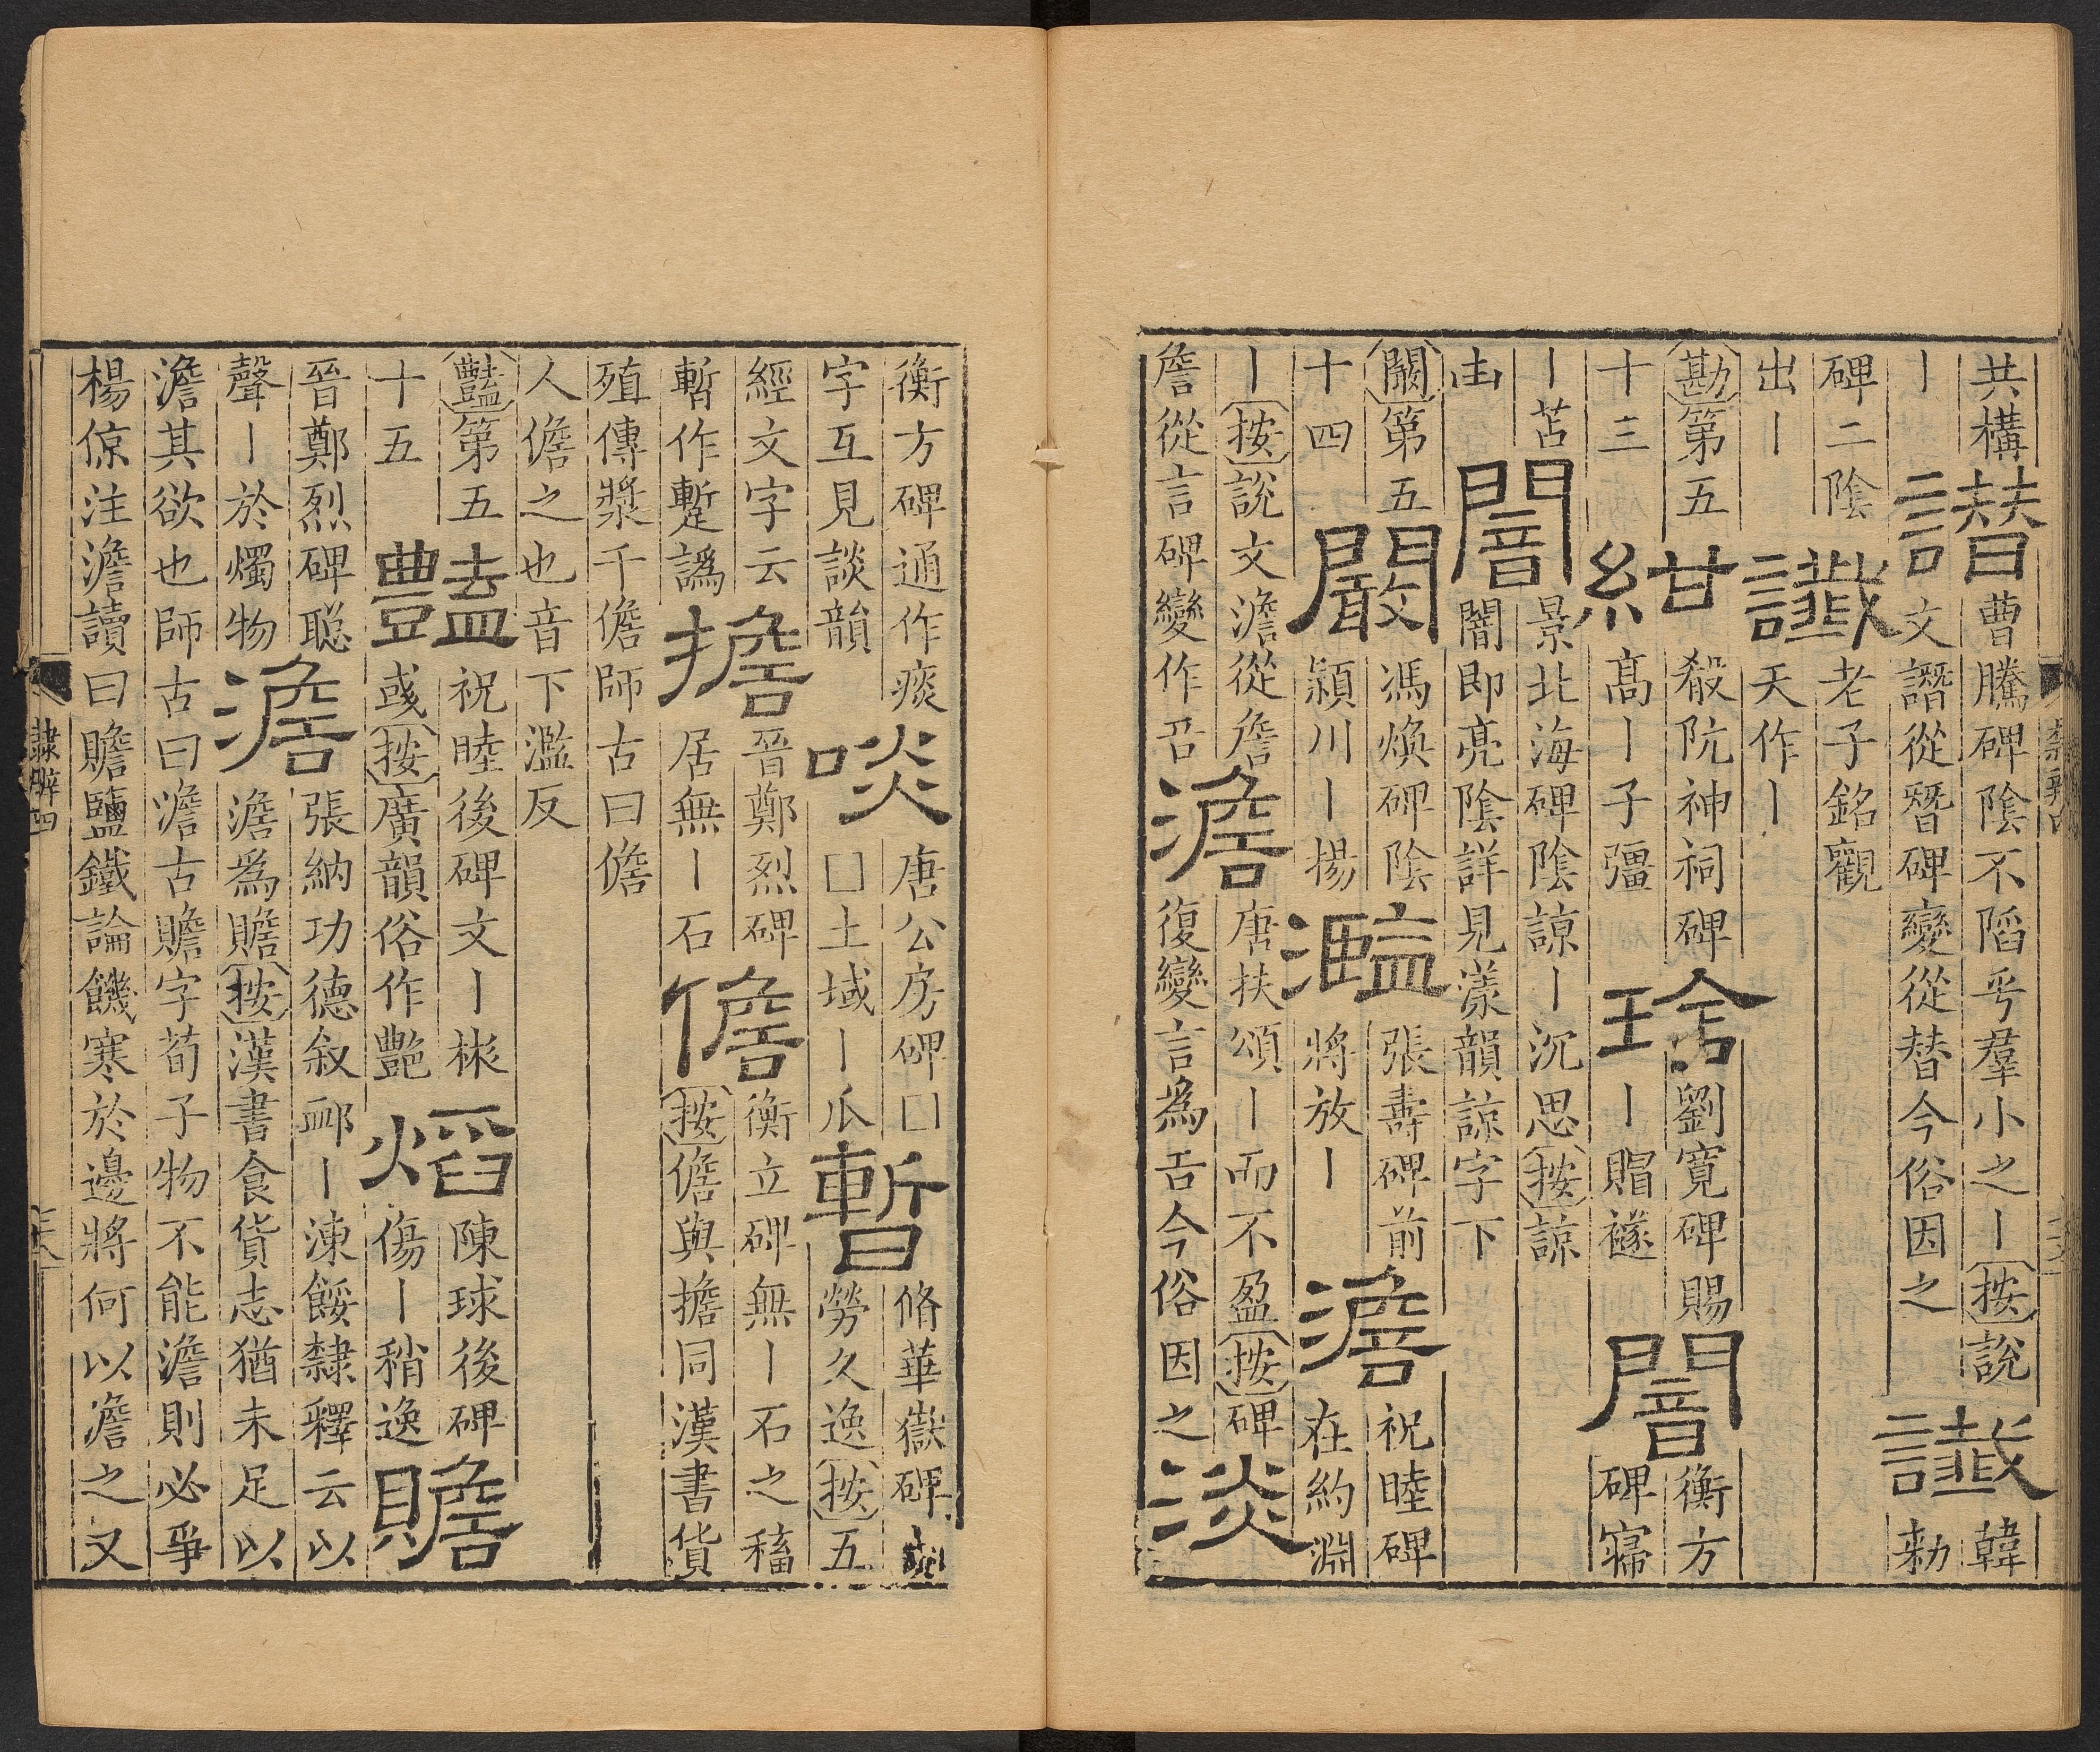 共構丨譖曹騰碑陰不䧟乎羣小之丨按說文譖從朁碑變從替今俗因之讖韓勑
碑二陰出丨讖老子銘觀天作丨
勘第五十三紺殽阬神祠碑高丨子彊琀劉寬碑賜丨賵襚闇衡方碑寢
丨苫凷闇景北海碑陰諒丨沉思按諒闇即亮陰詳見漾韻諒字下
闞第五十四闞馮煥碑陰潁川丨揚濫張壽碑前將放丨澹祝睦碑在約淵
丨按說文澹從詹詹從言碑變作澹唐扶頌丨而不盈按碑復變言為舌今俗因之淡
衡方碑通作痰字互見談韻啖唐公房碑□□土域丨瓜暫脩華嶽碑勞久逸按五
經文字云暫作蹔譌擔晉鄭烈碑居無丨石儋衡立碑無丨石之稸按儋與擔同漢書貨
殖傳漿千儋師古曰儋人儋之也音下濫反
豔第五十五豔祝睦後碑文丨彬彧按廣韻俗作艷焰陳球後碑傷丨稍逸贍
晉鄭烈碑聦聲丨於燭物澹張納功德叙丨涷餒隸釋云以澹為贍按漢書食貨志猶未足以
澹其欲也師古曰澹古贍字荀子物不能澹則必爭楊倞注澹讀曰贍鹽鐵論饑寒於邊將何以澹之又
隸辨四